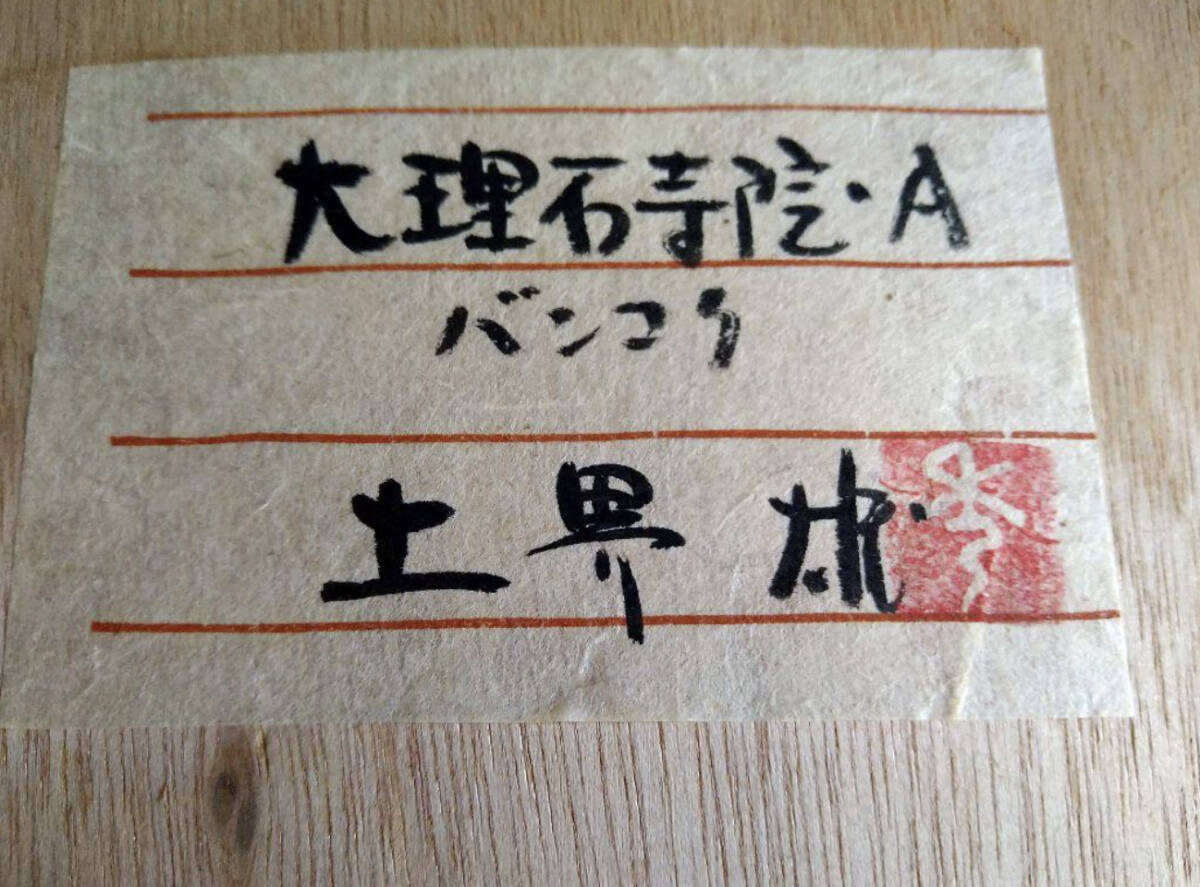 大理石寺院・A
バンコク
土界